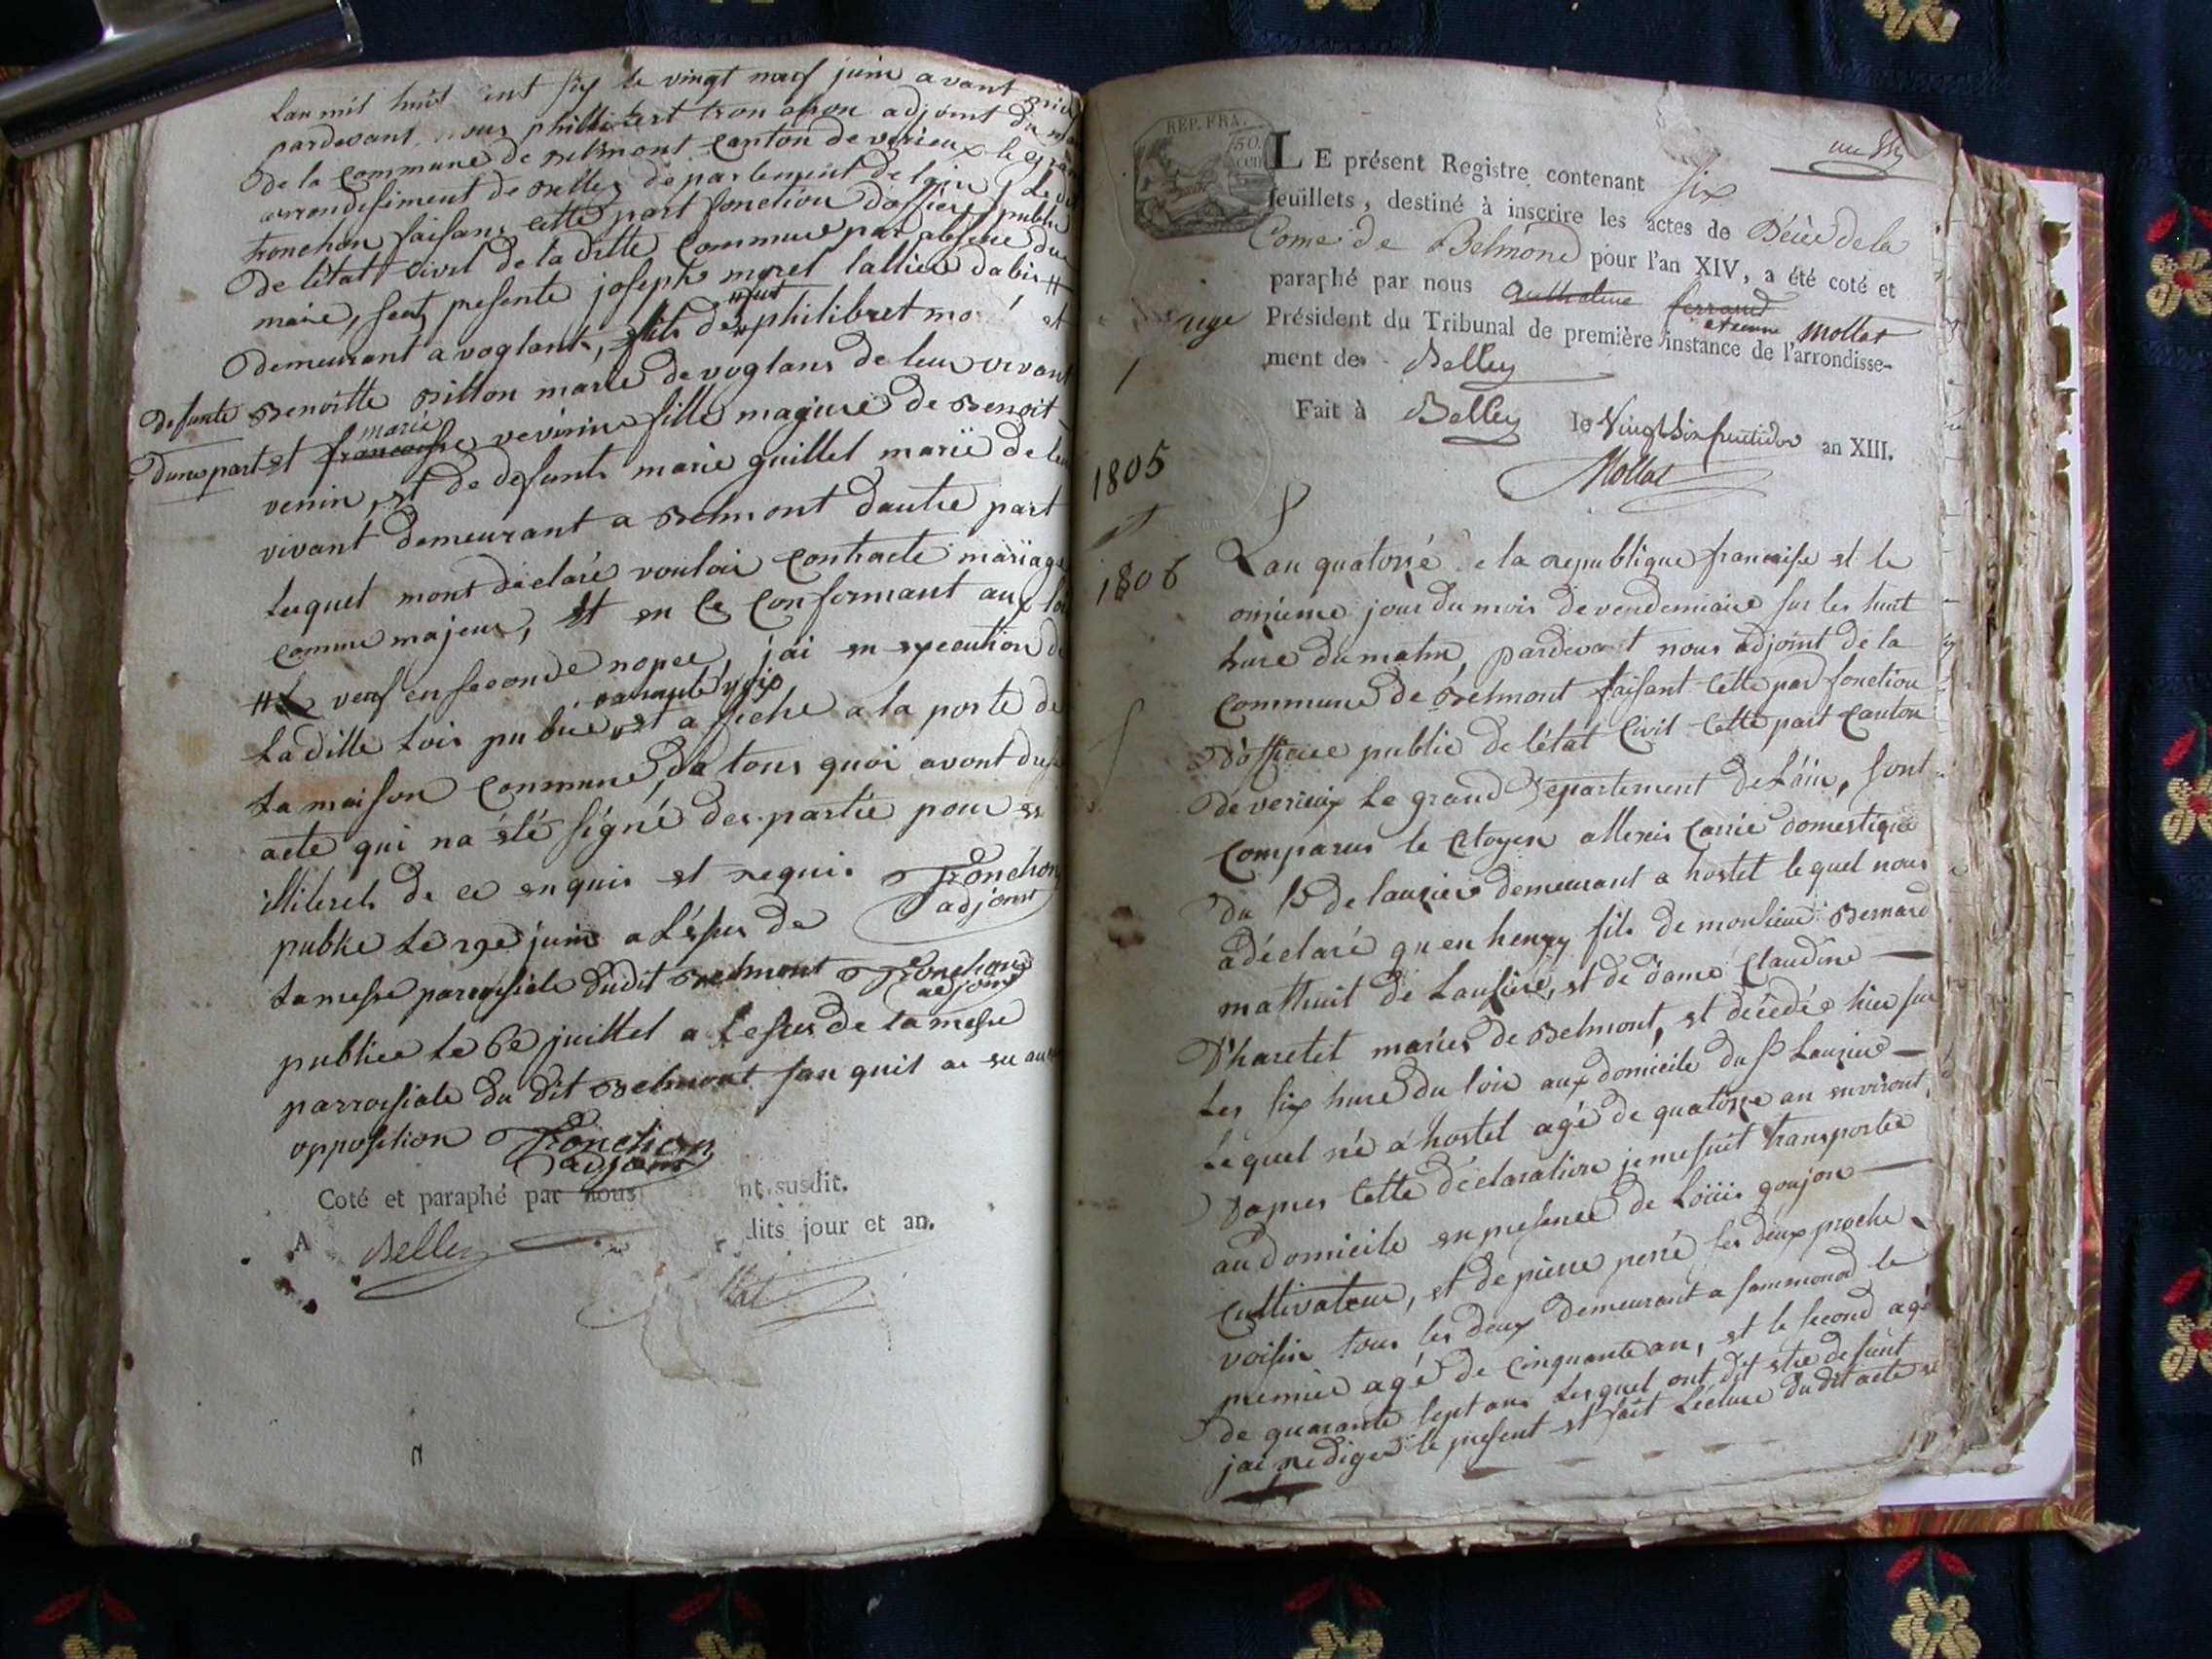 Lan mil huit cent six le vingt neuf juin avant midi
pardevant nous phillibert tronchon adjoint du
de la commune de Belmont canton de virieux le grand
arrondisiment de Belley departement de lain, Le dit
tronchon faisans cette part fonction d'officier public
de l'état civil de la ditte commune par absence du
maire, sont presente joseph morel lallier dabin #
demeurant a voglant, fils de # feut philibert mo et
defunte Benoitte Billon marié de voglans de leur vivant
dune part et francoise marie veverin fille majeure de Benoit
venin, et de defunte marie guillet marië de leu
vivant demeurant a Belmont dautre part
lesquel mont déclaré vouloir contracté mariage
comme majeur, et en se conformant aux loi
# veuf en seconde nopce, j'ai en execution de
La ditte Lois publié, et a fiché a la porte de
La maison commune, da tous quoi avont dressé
acte qui na été signé des partie pour es
illiterets de ce enquis et requis Tronchon
adjoint
publié Le 29e juin a L'éssus de
La messe paroissiale dudit Belmont Tronchon
adjoint
publiee Le 6e juillet a Lessus de La messe
parroissiale du dit Belmont san quil ai eu aucune
opposition Tronchon
adjoint
Coté et paraphé par nous nt susdit.
A Belley dits jour et an.
REP. FRA.
LE présent Registre contenant six
feuillets, destiné à inscrire les actes de Décès de la
Come de Belmond pour l'an XIV, a été coté et
paraphé par nous anthelme ferrand etienne Mollet
Président du Tribunal de première instance de l'arrondisse-
ment de Belley
Fait à Belley le Vingt Six fructidor an XIII.
Mollet
1805
et
1806
Lan quatorzé de la republique francaise et le
onzieme jour du mois de vendemiaire sur les huit
hure du matin, pardevant nous adjoint de la
commune de Belmont faisant cette par fonction
d'officiee public de l'état civil cette part canton
de verieux Le grand departement de L'ain, sont
comparus le citoyen
du Sr de lauzier demeurant a hostel lequel nous
a déclaré qu'en henry fils de monsieur Bernard
matthuit de Lausiere, et de dame Claudine
D'haretet mariés de Belmont, et décedé hier sur
Les six hure du soir aux domicile du Sr Lauzier
Lequel né a hostel agé de quatorze an environt,
Dapres cette déclaration je me suit transportée
au domicile en presence de Loüis goujon
cultivateur, et de pierre perré les deux proche
voisin tous les deux demeurant a sammonod le
premier agé de cinquante an, et le second agé
de quarante sept ans Lesquel ont dit etre defunt
jai rediger le present et fait Lécture du dit acte